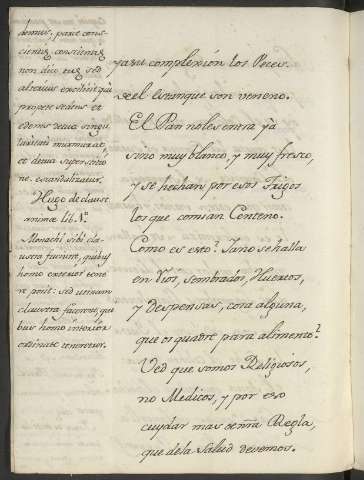 demus, parce cons-
cientiæ, conscientiæ
non dico tuæ, sed
alterius existent qui
prope te sedens et
edens de tua singu
laritati murmurat,
et de tua superstitio
ne, escandalizatur.
Hugo de claust.
animæ lib. 1.º
Monachi sibi clau
stra faciunt, quibus
homo exterior tene
re possit: sed utinam
claustra facerent, qui
bus homo interior
ordinate teneretur.
ya su complexión los Peces
de el estanque son veneno.
El Pan no les entra yà
sino muy blanco, y muy fresco,
y se hechan por esos Trigos
los que comian Centeno.
Como es esto? Ya no se halla
en Rios, sembrados, Huertos,
y despensas, cosa alguna,
que os quadre para alimento?
Ved que somos Religiosos,
no Medicos, y por eso
cuydar mas de ñra Regla,
que de la salud devemos.